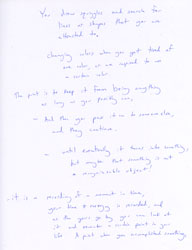 You draw squiggles and search for
lines or shapes that you are
attracted to,
changing colors when you get tired of
one color, or are inspired to use
a certain color
The point is to keep it from being anything
as long as you possibly can,
- And then you pass it on to someone else,
and they continue.
- until eventually it turns into something,
but maybe that something is not
a recognizable object!
- it is a recording of a moment in time,
your time & energy is recorded, and
as the years go by you can look at
it and remember a certain point in your
life. A point when you accomplished something.